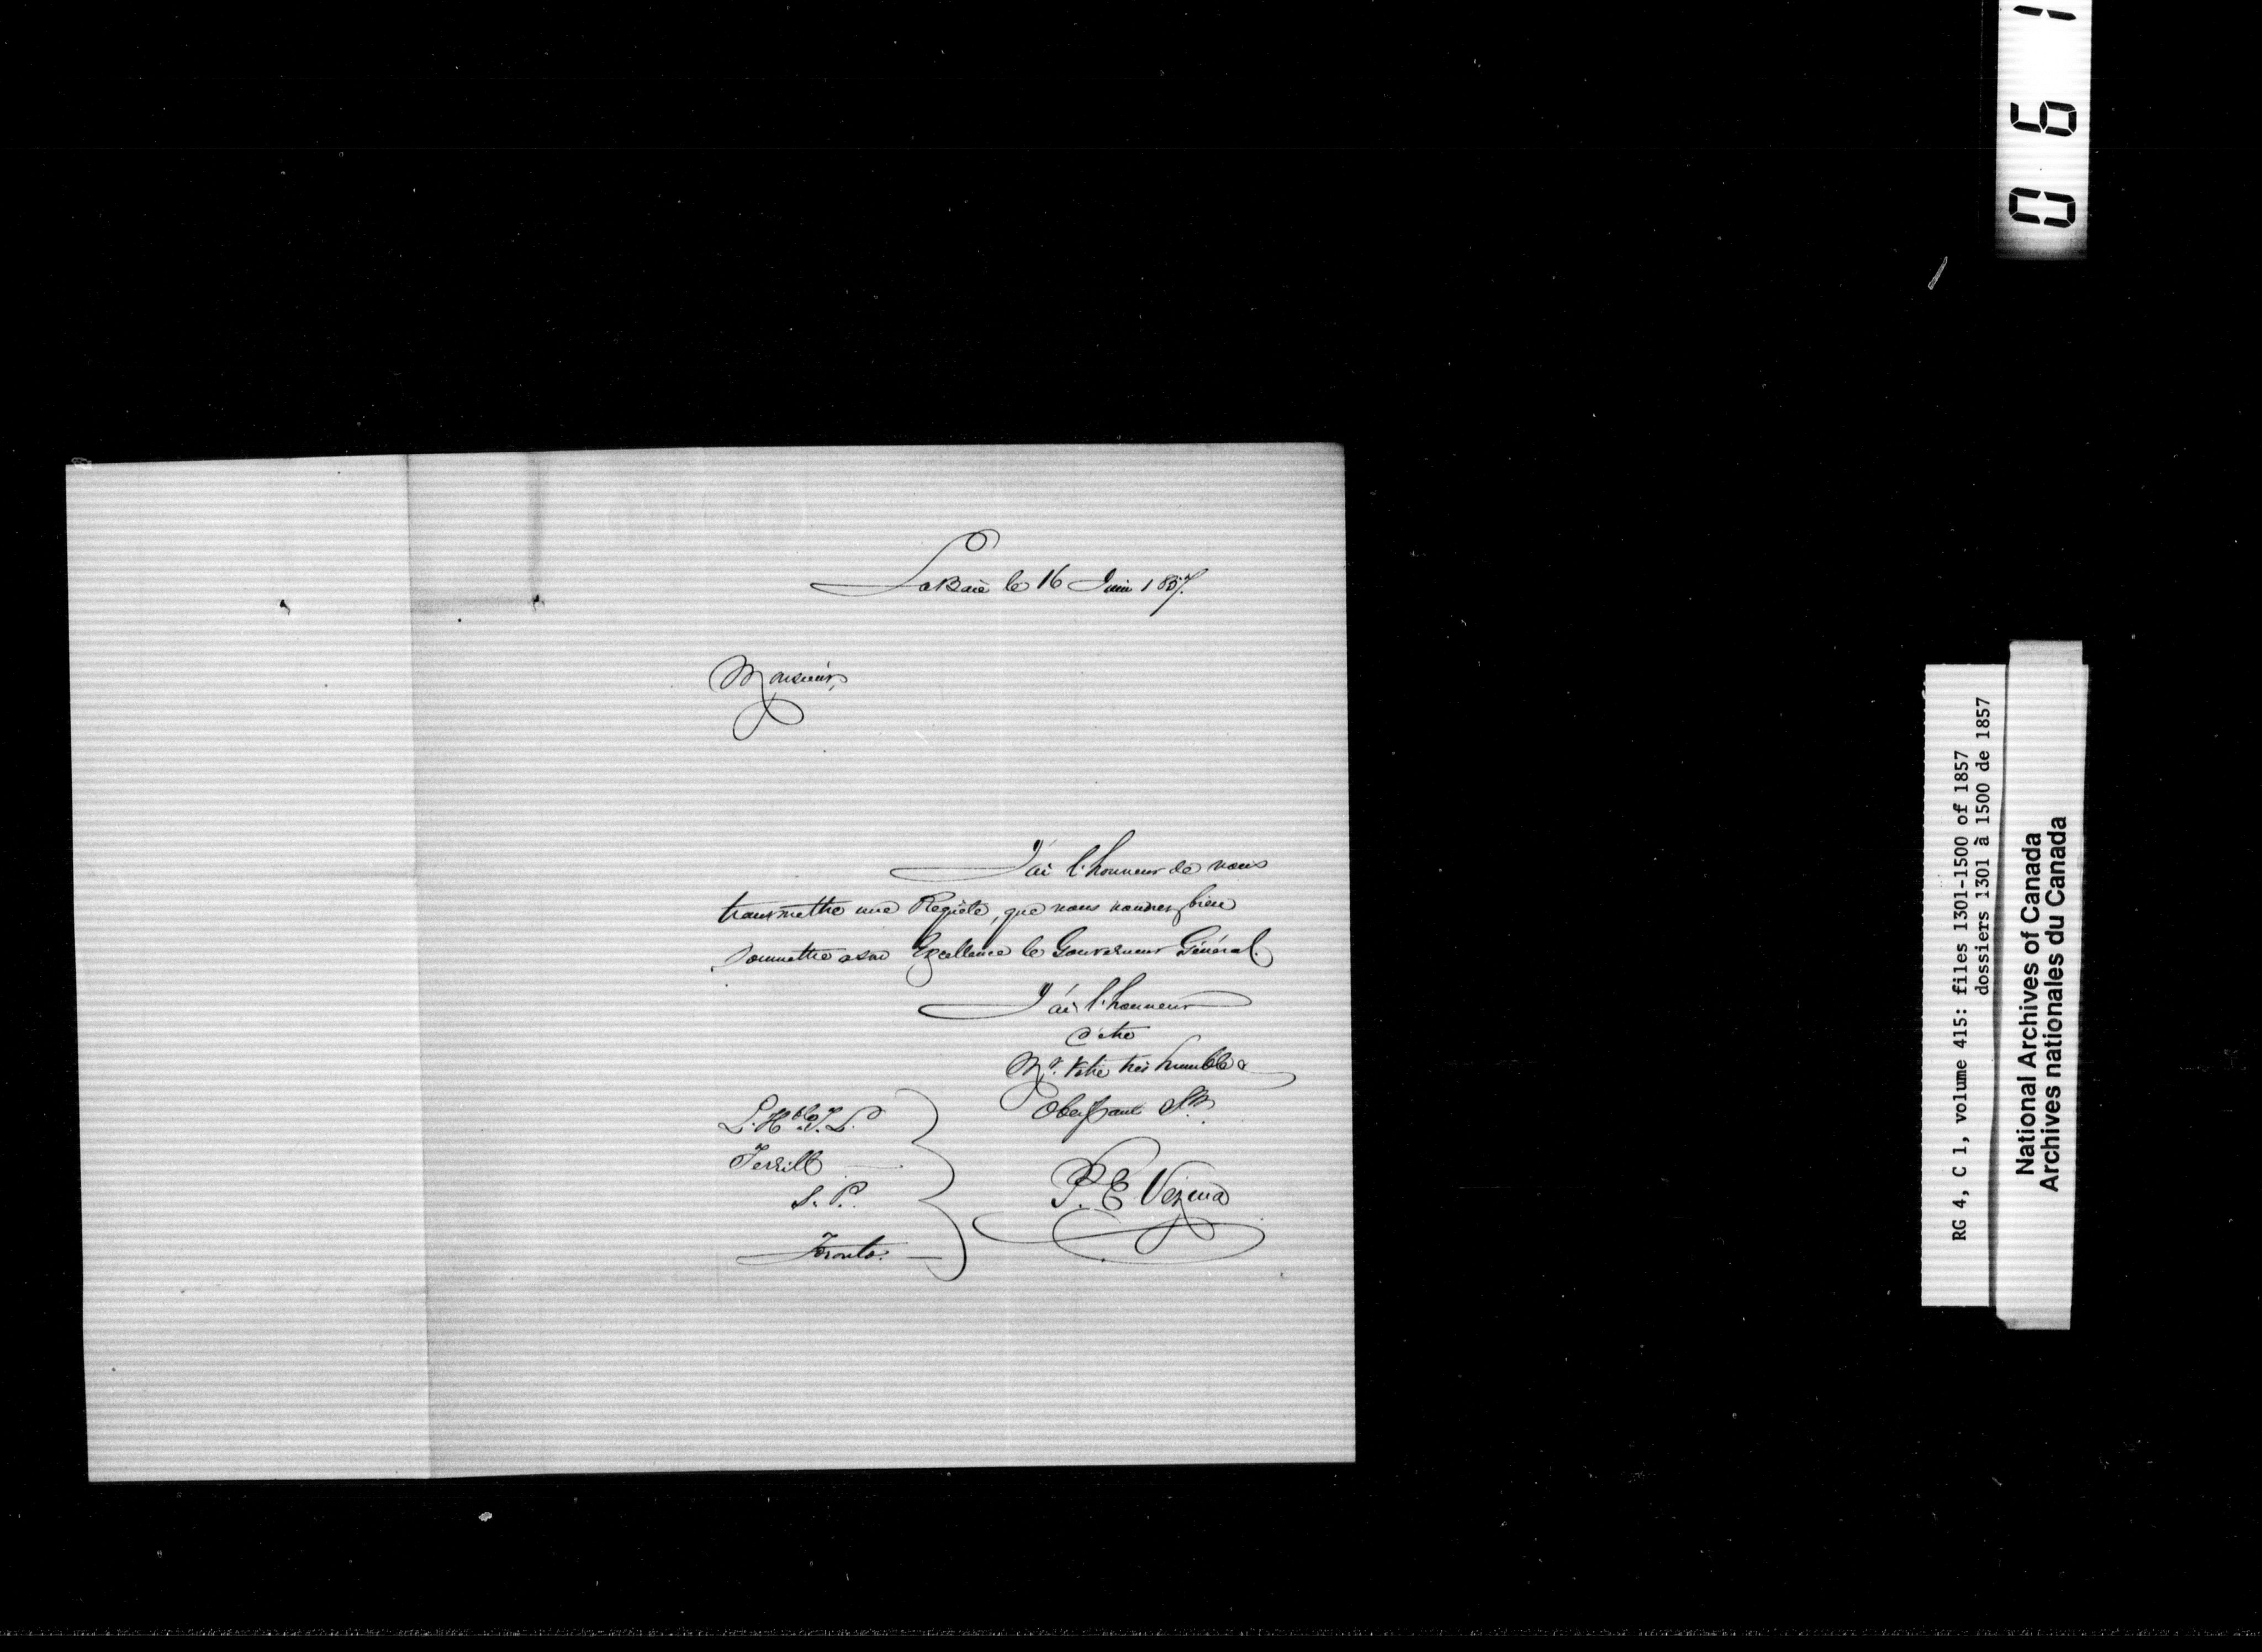 LaBaie le 16 Juin 1857.
Monsieur,
J'ai l'honneur de vous
transmettre une Requête, que vous voudrez bien
soumettre a son Excellence le Gouverneur Général.
J'ai l'honneur
d'être
Mr. Votre très humble &
Obeissant Sr.
L. Hble T. L.
Terrill
S. P.
Toronto.
P. E. Vezina
061
RG 4, C 1, volume 415: files 1301-1500 of 1857
dossiers 1301 à 1500 de 1857
National Archives of Canada
Archives nationales du Canada